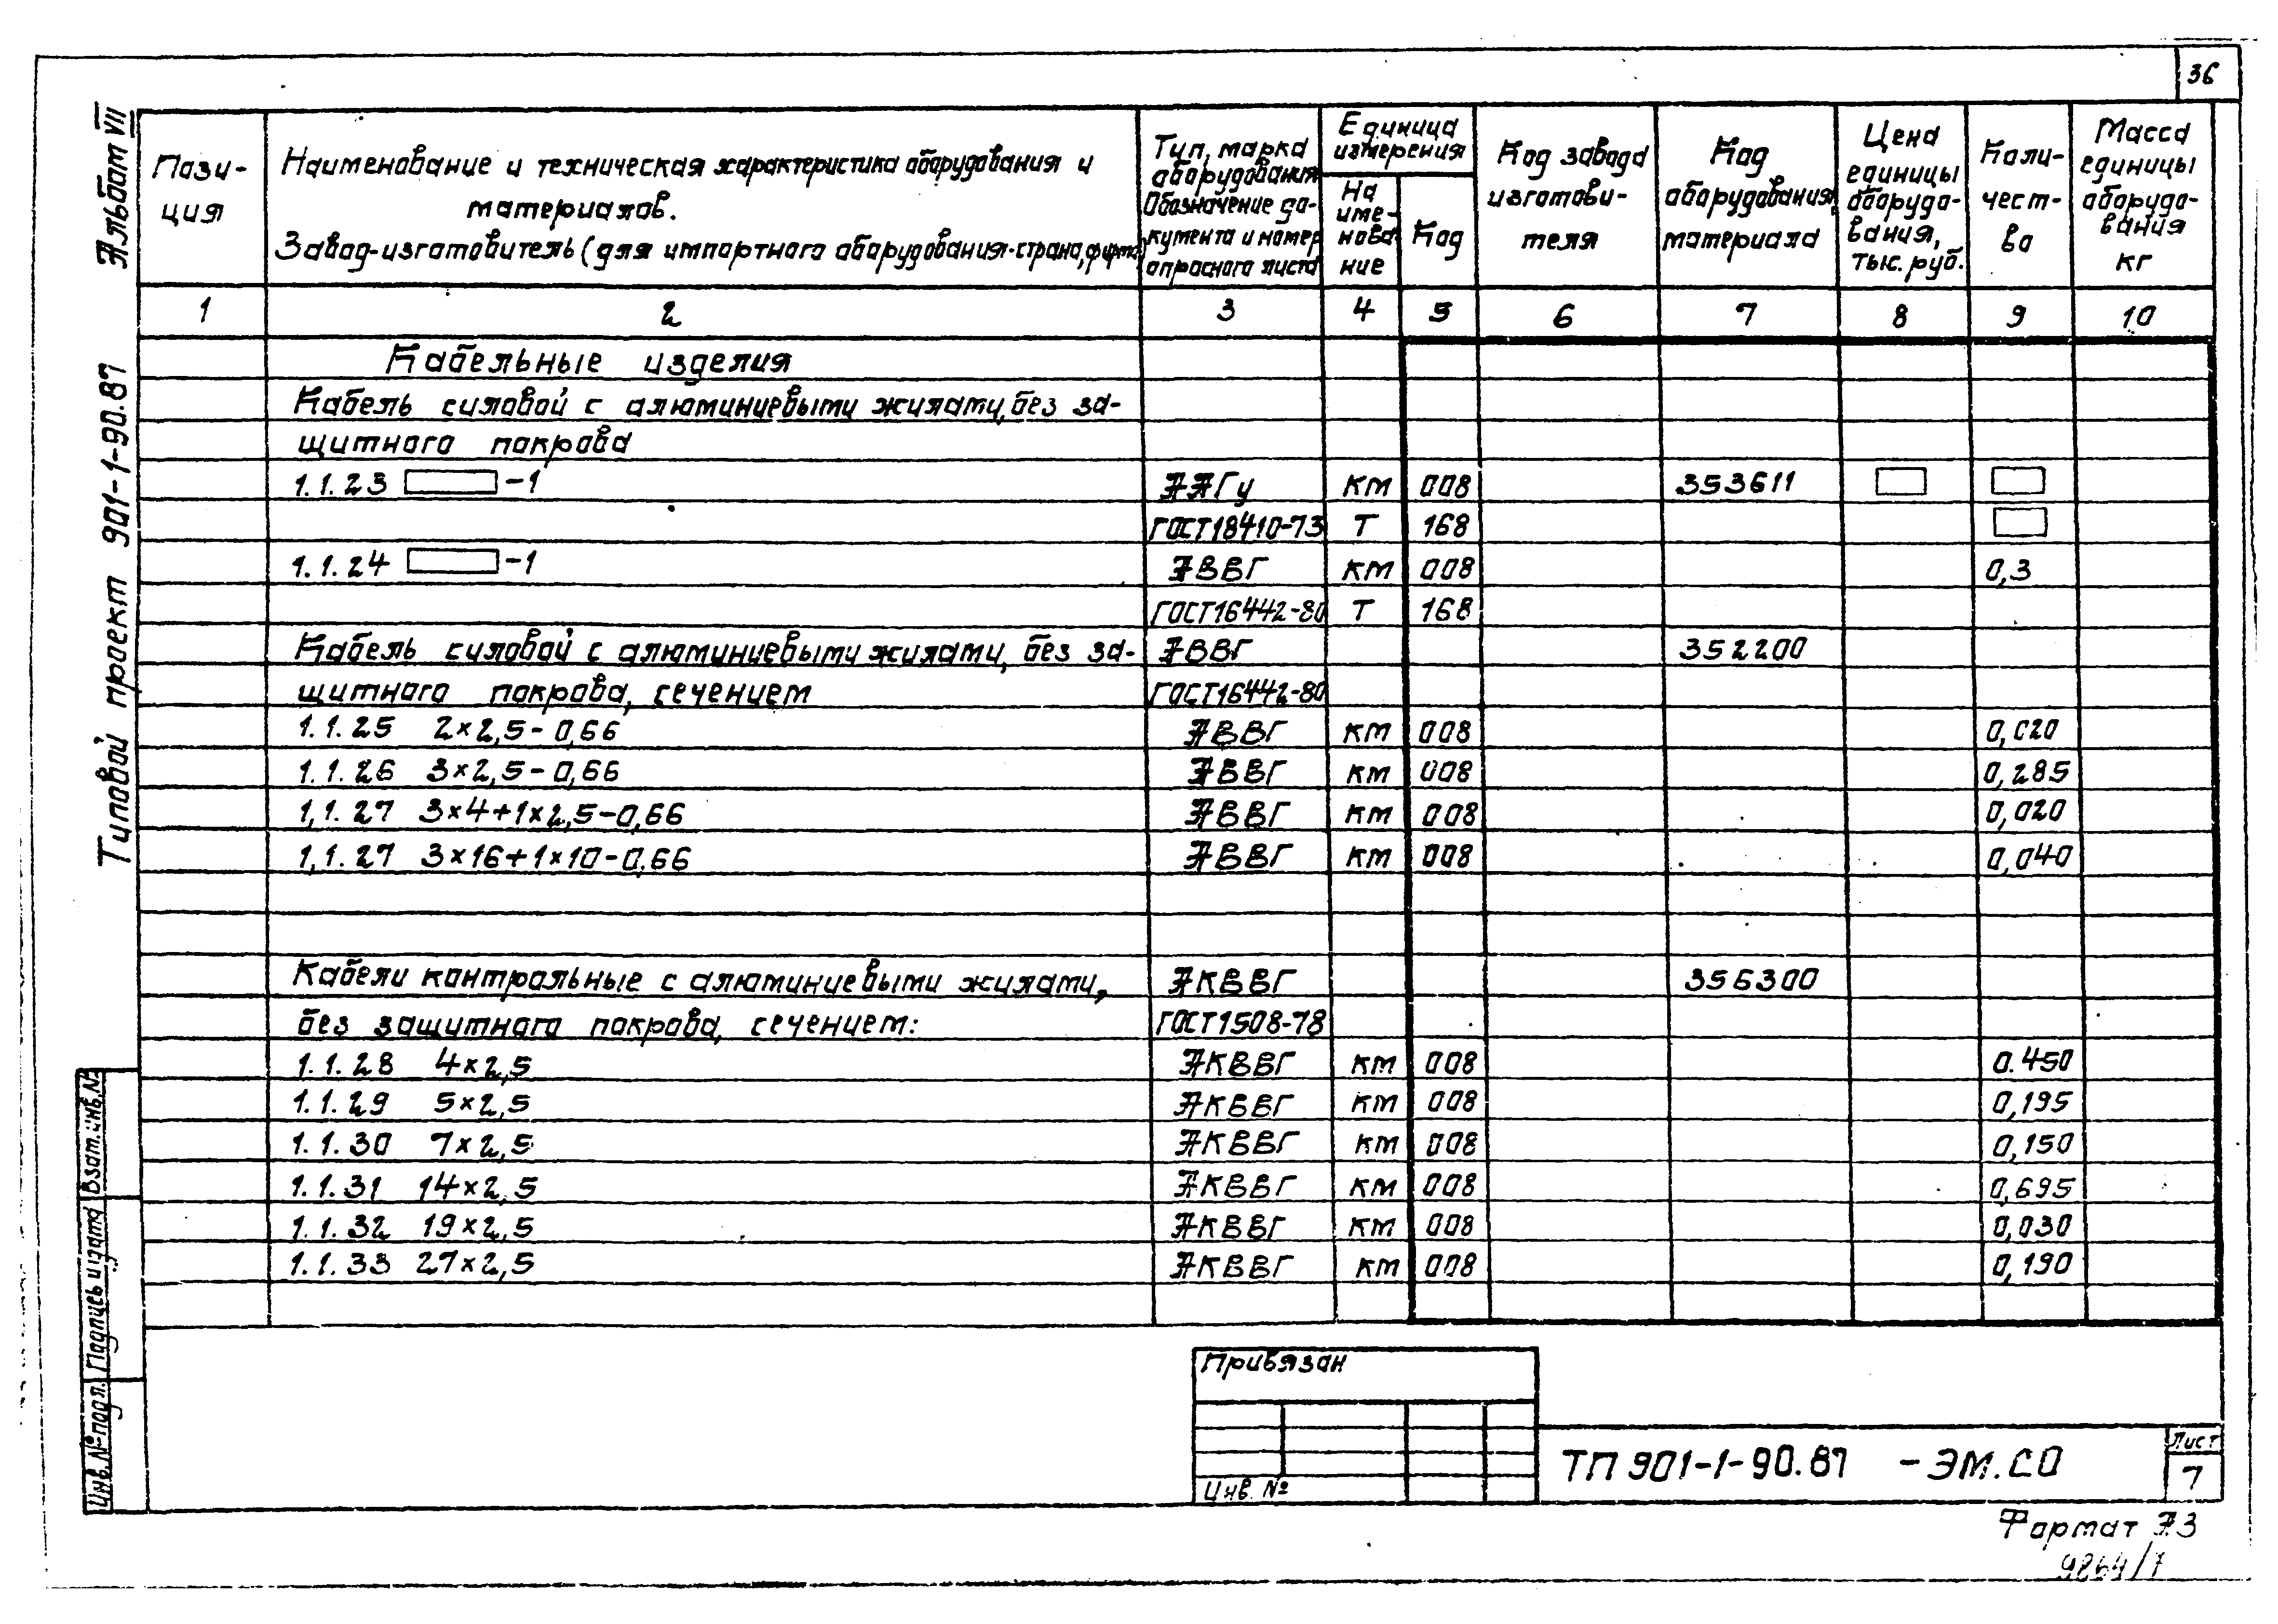 36
Альбом VII
Типовой проект 901-1-90.87
Пози-
ция
Наименование и техническая характеристика оборудования и
материалов.
Завод-изготовитель (для импортного оборудования-страна, фирма)
Тип, марка
оборудования
Обозначение до-
кумента и номер
опросного листа
Единица
измерения
На
име-
нова
ние
Код
Код завода
изготови-
теля
Код
оборудования,
материала
Цена
единицы
оборудо-
вания,
тыс. руб.
Коли-
чест-
во
Масса
единицы
оборудо-
вания
кг
1 2 3 4 5 6 7 8 9 10
Кабельные изделия
Кабель силовой с алюминиевыми жилами, без за-
щитного покрова
1.1.23 -1 ААГу км 008 353611
ГОСТ18410-73 Т 168
1.1.24 -1 АВВГ км 008 0,3
ГОСТ16442-80 Т 168
Кабель силовой с алюминиевыми жилами, без за- АВВГ 352200
щитного покрова, сечением ГОСТ16442-80
1.1.25 2×2,5-0,66 АВВГ км 008 0,020
1.1.26 3×2,5-0,66 АВВГ км 008 0,285
1,1.27 3×4+1×2,5-0,66 АВВГ км 008 0,020
1,1.27 3×16+1×10-0,66 АВВГ км 008 0,040
Кабели контрольные с алюминиевыми жилами, АКВВГ 356300
без защитного покрова, сечением: ГОСТ1508-78
1.1.28 4×2,5 АКВВГ км 008 0.450
1.1.29 5×2,5 АКВВГ км 008 0,195
1.1.30 7×2,5 АКВВГ км 008 0,150
1.1.31 14×2,5 АКВВГ км 008 0,695
1.1.32 19×2,5 АКВВГ км 008 0,030
1.1.33 27×2,5 АКВВГ км 008 0,190
Взам. инв. №
Подпись и дата
Инв. № подл.
Привязан
Инв. №
ТП 901-1-90.87 -ЭМ.СО
Лист
7
Формат А3
9864/7